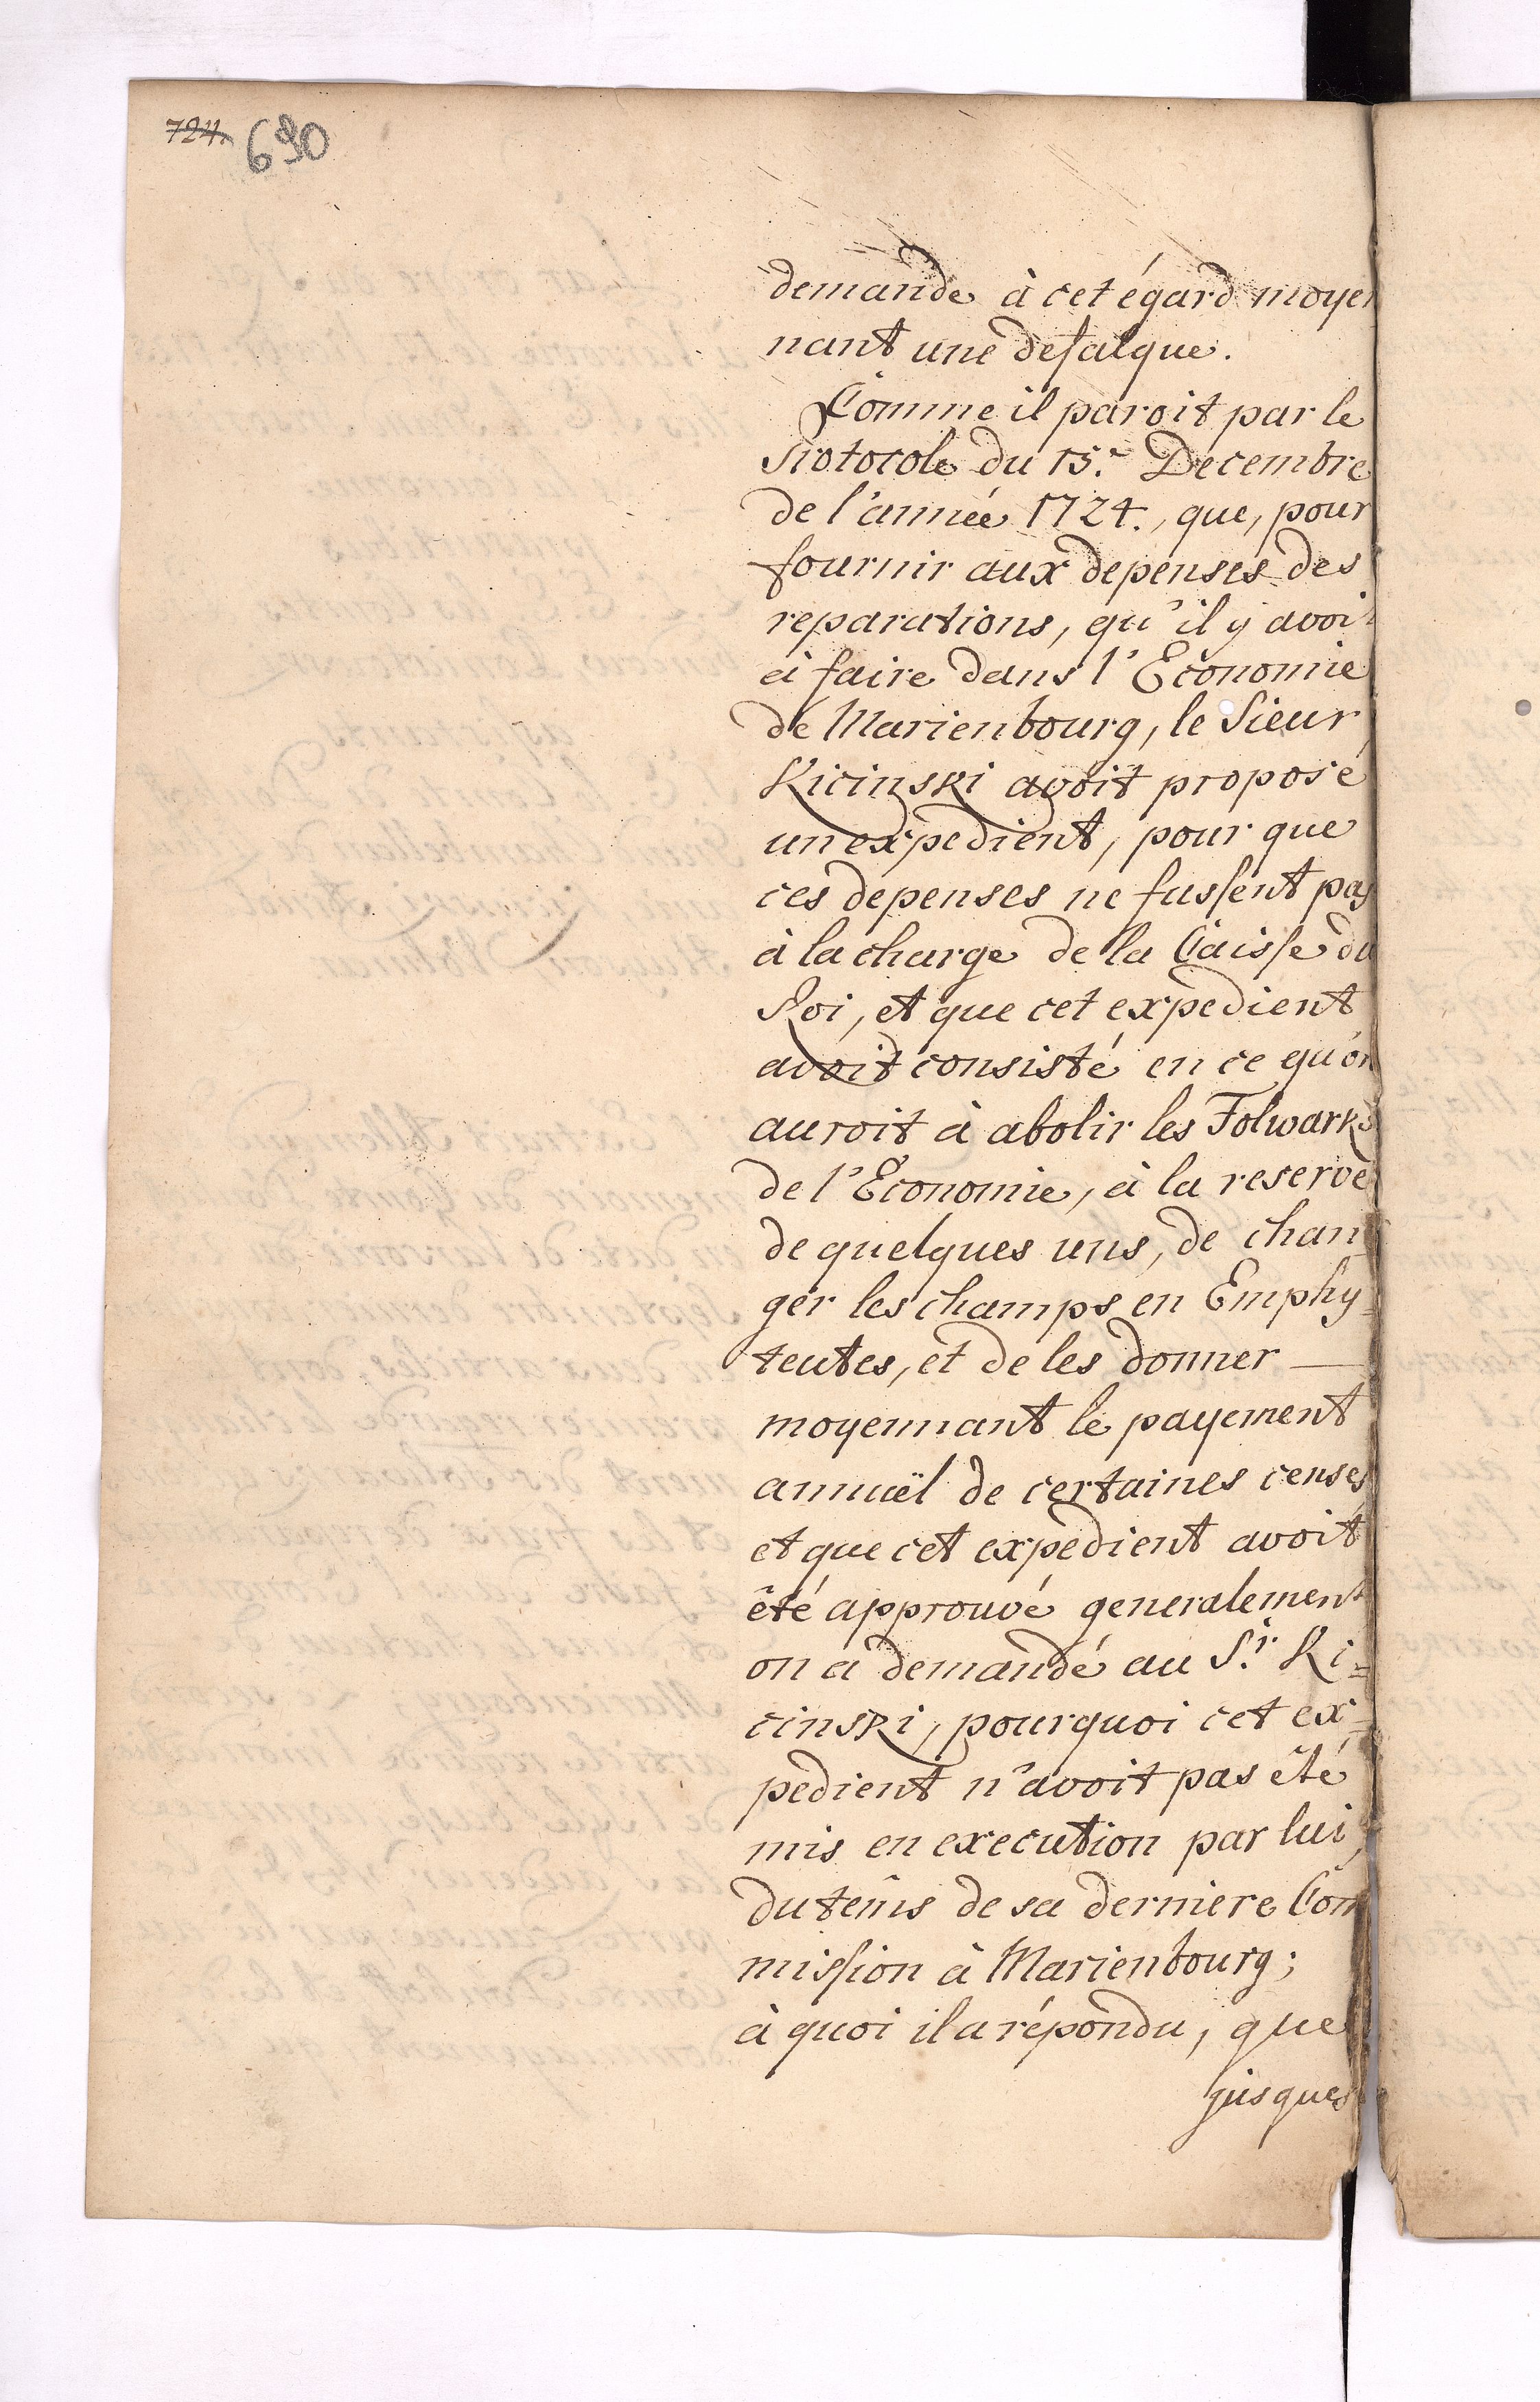 724. 690
demande à cet égard moyen
nant une defalque.
Comme il paroit par le
Protocole du 15.e Decembre
de l'année 1724., que, pour
fournir aux depenses des
reparations, qu'il y avoit
à faire dans l'Economie
de Marienbourg, le Sieur
Kicinski avoit proposé
un expedient, pour que
ces depenses ne fussent pas
à la charge de la Caisse du
Roi, et que cet expedient
avoit consisté en ce qu'on
auroit à abolir les Folwarks
de l'Economie, à la reserve
de quelques uns, de chan
ger les champs en Emphy=
teutes, et de les donner —
moyennant le payement
annuël de certaines censes
et que cet expedient avoit
êté approuvé generalement
on a demandé au S.r Ki=
cinski, pourquoi cet ex=
pedient n'avoit pas êté
mis en execution par lui,
du tems de sa derniere Com
mission à Marienbourg;
à quoi il a répondu, que
jusques